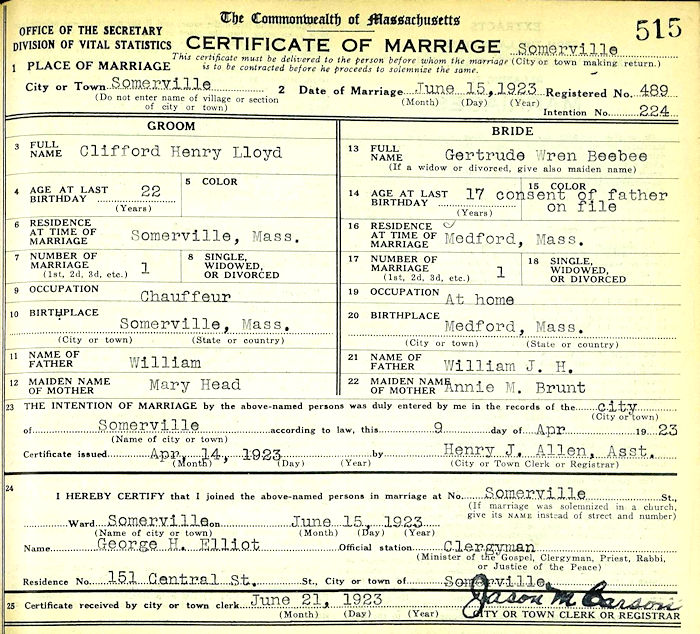 The Commonwealth of Massachusetts
515
OFFICE OF THE SECRETARY
DIVISION OF VITAL STATISTICS
CERTIFICATE OF MARRIAGE
Somerville
(City or town making return.)
1 PLACE OF MARRIAGE
This certificate must be delivered to the person before whom the marriage
is to be contracted before he proceeds to solemnize the same.
City or Town Somerville
(Do not enter name of village or section
of city or town)
2 Date of Marriage June 15, 1923
(Month) (Day) (Year)
Registered No. 489
Intention No. 224
GROOM
3 FULL NAME Clifford Henry Lloyd
4 AGE AT LAST BIRTHDAY 22
(Years)
5 COLOR
6 RESIDENCE AT TIME OF MARRIAGE Somerville, Mass.
7 NUMBER OF MARRIAGE (1st, 2d, 3d, etc.) 1
8 SINGLE, WIDOWED, OR DIVORCED
9 OCCUPATION Chauffeur
10 BIRTHPLACE Somerville, Mass.
(City or town) (State or country)
11 NAME OF FATHER William
12 MAIDEN NAME OF MOTHER Mary Head
BRIDE
13 FULL NAME Gertrude Wren Beebee
(If a widow or divorced, give also maiden name)
14 AGE AT LAST BIRTHDAY 17 consent of father on file
(Years)
15 COLOR
16 RESIDENCE AT TIME OF MARRIAGE Medford, Mass.
17 NUMBER OF MARRIAGE (1st, 2d, 3d, etc.) 1
18 SINGLE, WIDOWED, OR DIVORCED
19 OCCUPATION At home
20 BIRTHPLACE Medford, Mass.
(City or town) (State or country)
21 NAME OF FATHER William J. H.
22 MAIDEN NAME OF MOTHER Annie M. Brunt
23 THE INTENTION OF MARRIAGE by the above-named persons was duly entered by me in the records of the city
(City or town)
of Somerville according to law, this 9 day of Apr 1923
(Name of city or town)
Certificate issued Apr, 14, 1923 by Henry J. Allen, Asst.
(Month) (Day) (Year) (City or Town Clerk or Registrar)
24
I HEREBY CERTIFY that I joined the above-named persons in marriage at No. Somerville St.,
(If marriage was solemnized in a church,
give its NAME instead of street and number)
Ward Somerville on June 15, 1923
(Name of city or town) (Month) (Day) (Year)
Name George H. Elliot Official station Clergyman
(Minister of the Gospel, Clergyman, Priest, Rabbi,
or Justice of the Peace)
Residence No. 151 Central St. St., City or town of Somerville
25 Certificate received by city or town clerk June 21, 1923 Jason M Carson
(Month) (Day) (Year) CITY OR TOWN CLERK OR REGISTRAR